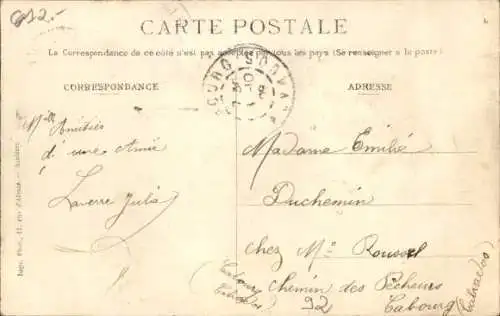 632.-
CARTE POSTALE
La Correspondance de ce côté n'est pas acceptée par tous les pays (Se renseigner à la poste)
CORRESPONDANCE
Mille Amitiés
d'une Amie
Laverre Julia
ADRESSE
Madame Emilie
Duchemin
Chez Mr Roussel
Chemin des Pêcheurs
Cabourg
(Calvados)
(Cabourg
Calvados)
92